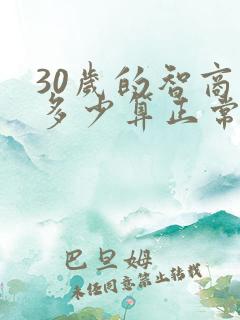 30岁的智商
多少算正常
巴旦姆
未经同意禁止转载